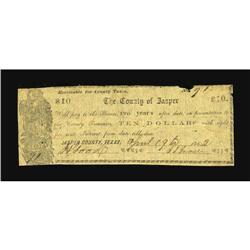 Receivable for County Taxes. 91
$10 The County of Jasper $10.
Will pay to the Bearer, TWO YEARS after date, on presentation to
County Treasurer TEN DOLLARS with eight
per cent Interest from date
JASPER COUNTY, TEXAS, April 19th 1862